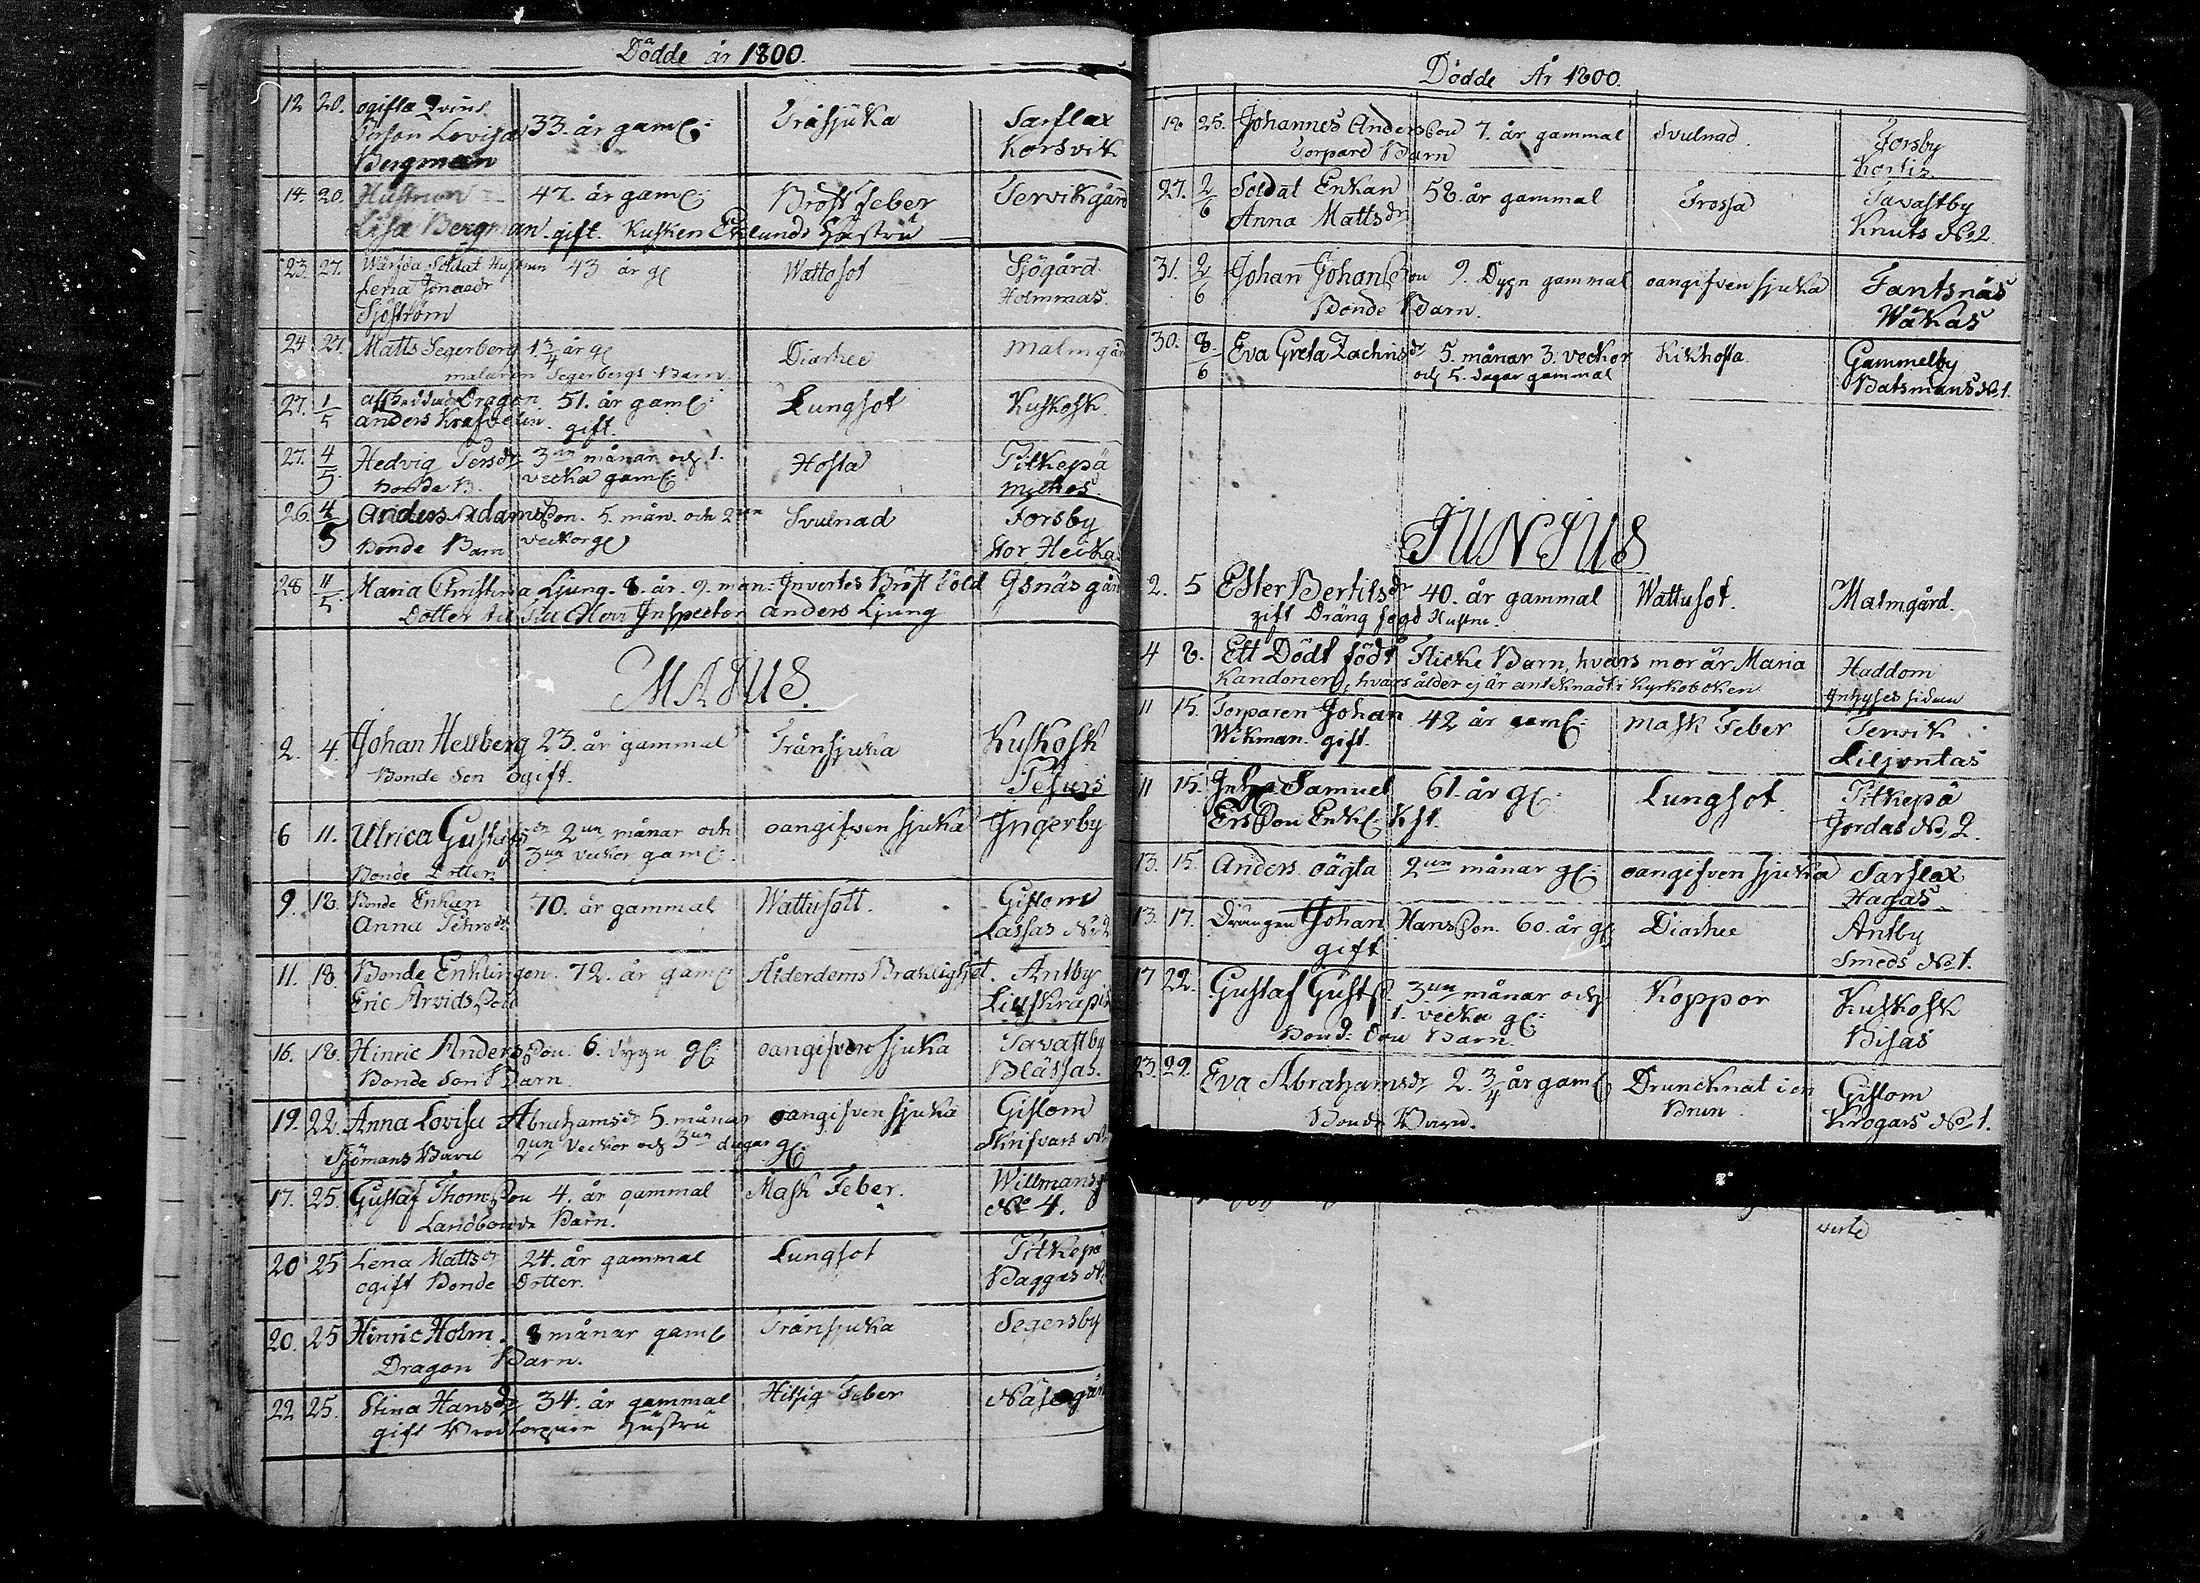 Dödde år 1800.
12 20. ogifta Qvins
Person Lovisa 33. år gaml: Tråsjuka Sarflax
Bergman Korsvik
14. 20. Hustrun 47. år gaml: Bröst Feber Tervikgård
Lisa Bergman. gift. Kusken Eklunds Hustru
23. 27. Wärfda Soldat Hustrun 43 år gl Wattosot Sjögård
Lena Jonaedr Holmmas.
Sjöström
24 27. Matts Segerberg 1 3/4 år gl Diarhee Malmgård
målaren Segerbergs Barn
27. 1/5 Dragon 51. år gaml: Lungsot Kuskosk
Anders gift.
27. 4/5 Hedvig Persdr 3un månar och 1. Hosta Pitkepä
Bonde B. vecka gaml: Mickos.
26. 4/5 Anders Adamsson. 5. mån. och 2un Svulnad Forsby
Bonde Barn veckor gl Stor Heikas
28 4/5. Maria Christina Ljung. 8. år. 9. mån: Invertes Bröst Böld Isnäs gård
Dotter til Herr Inspector Anders Ljung
MAJUS.
2. 4. Johan Hellberg 23. år gammal Trånsjuka Kuskosk
Bonde Son ogift. Pesurs
6 11. Ulrica Gustafsdr 2un månar och oangifven sjuka Ingerby
3un veckor gaml:
Bonde Dotter.
9. 18. Bonde Enkan 70. år gammal Wattusott. Gislom
Anna Pehrsdr Lassas No 2
11. 18. Bonde Enklingen. 72. år gaml: Ålderdoms Bräklighet. Antby
Eric Arvidsson Lillskräpis
16. 18. Hinric Andersson. 6. dygn gl: oangifven sjuka Tavastby
Bonde Son Barn. Blässas.
19. 22. Anna Lovisa Abrahamsdr 5. månar oangifven sjuka Gislom
Sjömans Barn 2un veckor och 3un dagar gl: Skrifvars
17. 25. Gustaf Thomsson 4. år gammal Mask Feber. Willmans
Landbonde Barn. No 4.
20 25 Lena Mattsdr 24. år gammal Lungsot Pitkepä
ogift Bonde Dotter. Baggas
20. 25 Hinric Holm. 8 månar gaml Trånsjuka Segersby
Dragon Barn.
22 25. Stina Hansdr 34. år gammal Hitsig Feber Näsegård
gift Hustru
Dödde År 1800.
18 25. Johannes Andersson 7. år gammal Svulnad. Forsby
Torpare Barn
27. 2/6 Soldat Enkan 58. år gammal Frossa Tavastby
Anna Mattsdr Knuts No 2.
31. 2/6 Johan Johansson 9. Dygn gammal oangifven sjuka Fantsnäs
Bonde Barn. Wäkas
30. 8/6 Eva Greta Zachrisdr 5. månar 3. veckor Kikhosta Gammelby
och 5. dagar gammal Batsmans No 1.
JUNIUS
2. 5 Ester Bertilsdr 40. år gammal Wattusot. Malmgård.
gift Dräng fogd Hustru.
4 8. Ett Dödt födt Flicke Barn, hvars mor är Maria Haddom
Kandonen, hvars ålder ej är antecknadt i kyrkoboken
11 15. Torparen Johan 42 år gaml: Mask Feber Tervik
Wikman. gift. Liljontas
11 15. Inhys Samuel 61. år gl: Lungsot Pitkepä
Ersson Enkl: Jordas No 2.
13. 15. Anders oägta 2un månar gl: oangifven sjuka Sarflax
Hagas
13. 17. Drängen Johan Hansson. 60. år gl: Diarhee Antby
gift Smeds No 1.
17 22. Gustaf Gusts. 3un månar och Koppor Kuskosk
1. vecka gl: Bisas
Bond: Son Barn.
23. 22. Eva Abrahamsdr 2. 3/4 år gaml Druncknat i en Gislom
Bonde Barn. Brun Krogars No 1.